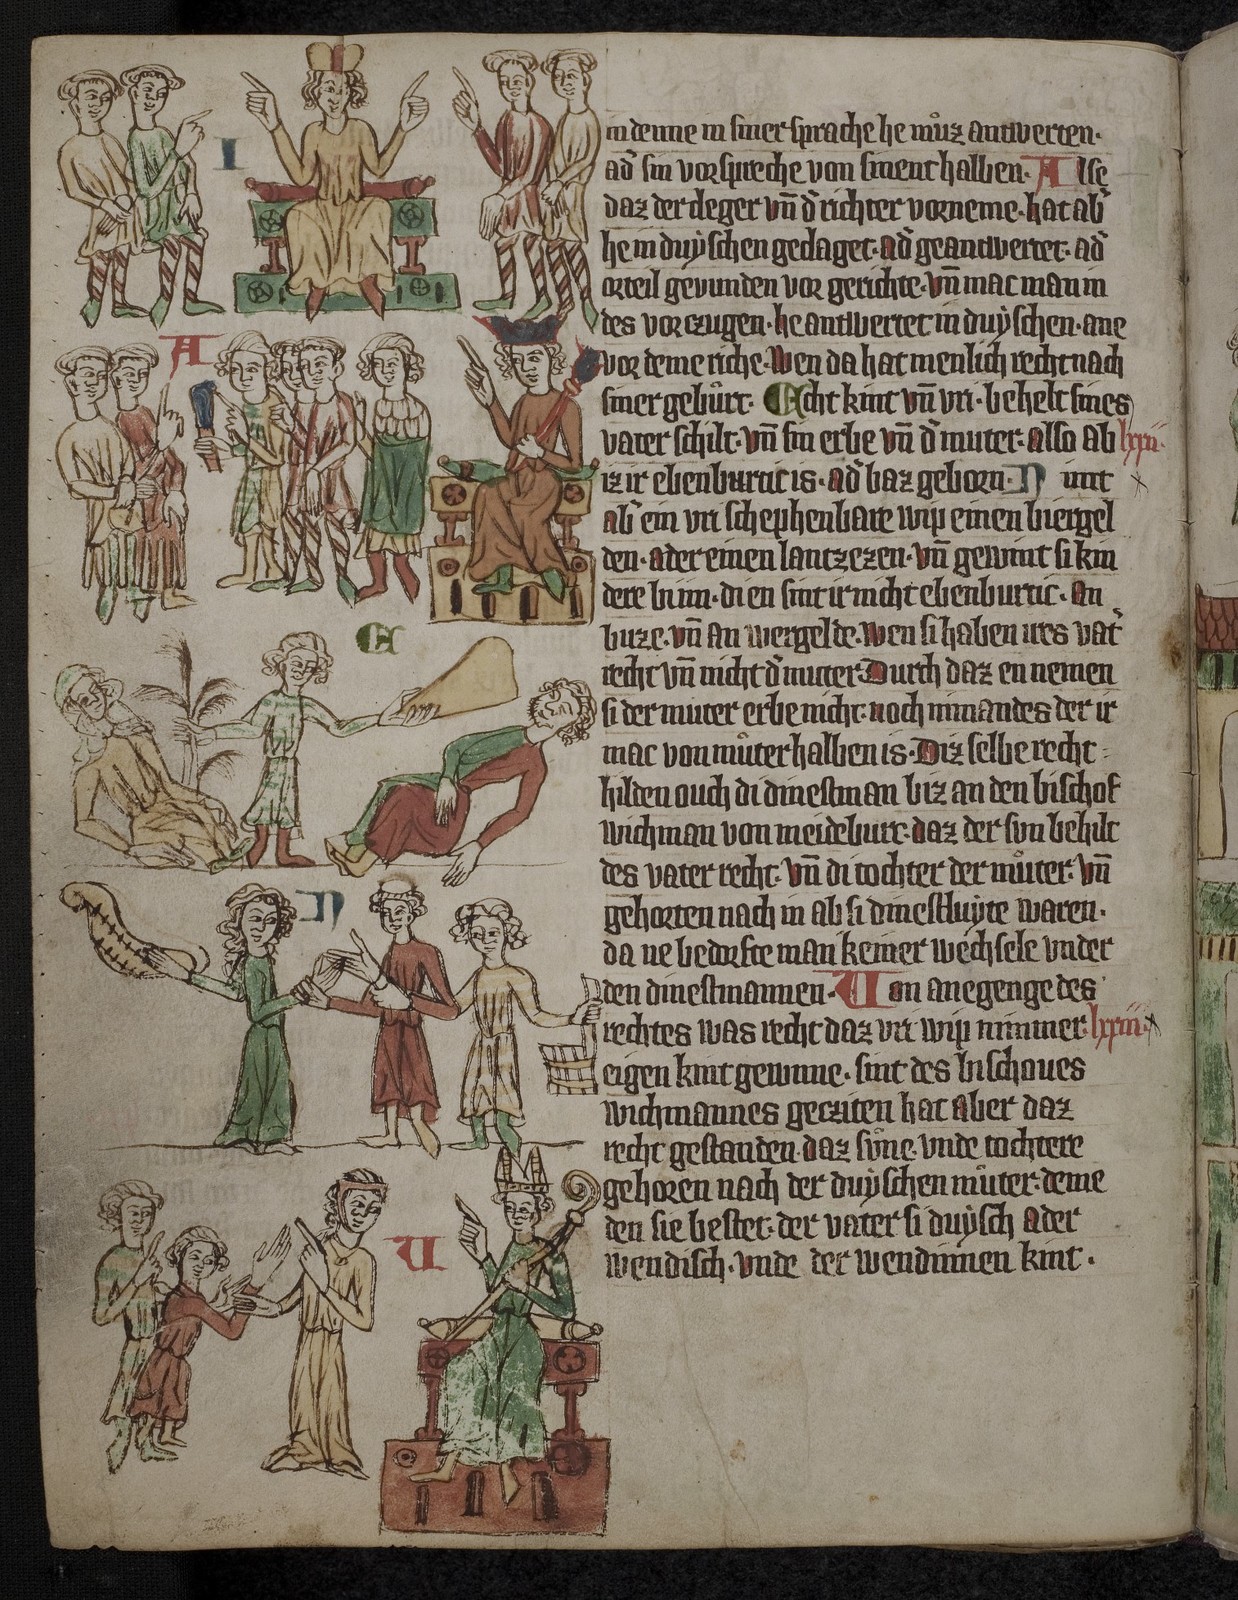 I
A
E
N
U
in denne in siner sprache he můz antwerten·
ad᷑ sin vorspreche von sinent halben· Alse
daz der cleger vn̄ d᷑ richter vorneme· hat ab᷑
he in duÿschen geclaget· ad᷑ geantwertet· ad᷑
orteil gevunden vor gerichte· vn̄ mac man in
des vorczugen· he antwertet in duÿschen· ane
vor deme riche· Wen da hat menlich recht nach
siner gebůrt· Echt kint vn̄ vri· behelt sines
vater schilt· vn̄ sin erbe vn̄ d᷑ muter· also ab lxxii·
iz ir ebenburtic is· ad᷑ baz geborn· Nimt
ab᷑ ein vri schephenbare wip einen biergel
den· ader einen lantzezen· vn̄ gewint si kin
dere bi im· di en sint ir nicht ebenburtic· an
buze· vn̄ an wergelde· Wen si haben ires vat᷑
recht vn̄ nicht d᷑ muter· Durch daz en nemen
si der muter erbe nicht· noch nimandes der ir
mac von můter halben is· Diz selbe recht
hilden ouch di dinestman biz an den bischof
wichman von meideburc· daz der svn behilt
des vater recht· vn̄ di tochter der můter· vn̄
gehorten nach in ab si dinestluyte waren·
da ne bedorfte man keiner wechsele vnder
den dinestmannen· Von anegenge des
rechtes was recht daz vri wip nimmer lxxiii·
eigen kint gewnne· sint des bischoues
wichmannes gecziten hat aber daz
recht gestanden· daz sůne· vnde tochtere
gehoren nach der duÿschen můter· deme
den sie bestet· der vater si duÿsch ader
wendisch· vnde der wendinnen kint·